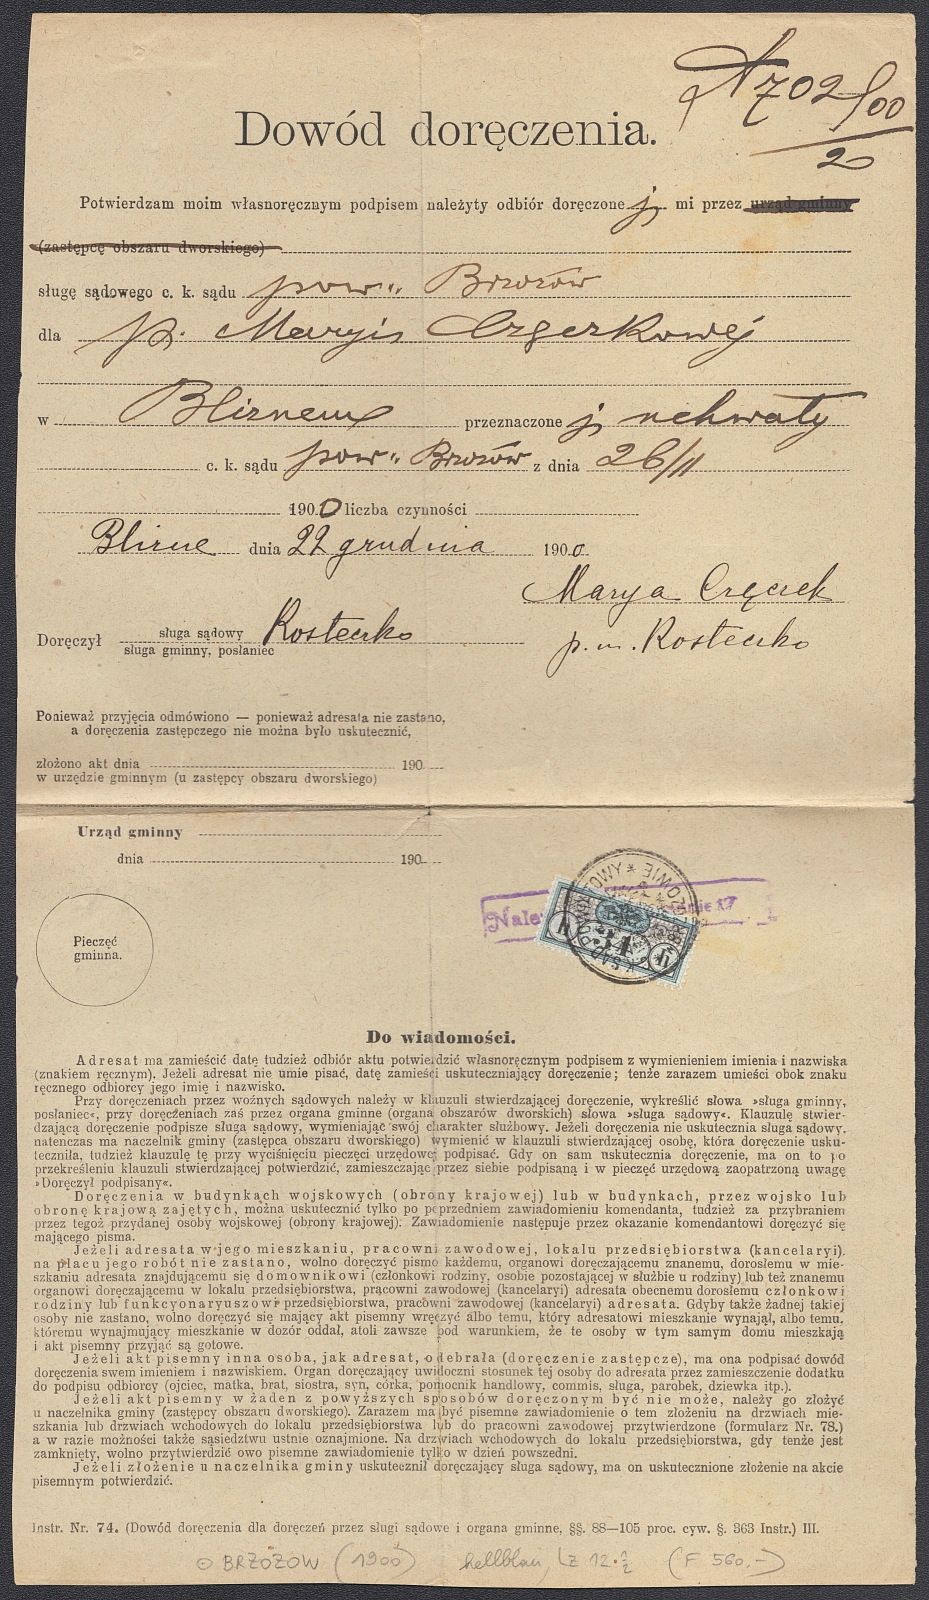 A 702/00
2
Dowód doręczenia.
Potwierdzam moim własnoręcznym podpisem należyty odbiór doręczone j mi przez urząd gminny
(zastępcę obszaru dworskiego)
sługę sądowego c. k. sądu pow. Brzozów
dla p. Maryi
w Bliznem przeznaczone j uchwały
c. k. sądu pow. Brzozów z dnia 26/11
1900 liczba czynności
Blizne dnia 22 grudnia 1900
Marya
Doręczył sługa sądowy Kosteczko
sługa gminny, posłaniec
p. m. Kosteczko
Ponieważ przyjęcia odmówiono — ponieważ adresata nie zastano,
a doręczenia zastępczego nie można było uskutecznić,
złożono akt dnia 190
w urzędzie gminnym (u zastępcy obszaru dworskiego)
Urząd gminny
dnia 190
Pieczęć
gminna.
34
Do wiadomości.
Adresat ma zamieścić datę tudzież odbiór aktu potwierdzić własnoręcznym podpisem z wymienieniem imienia i nazwiska
(znakiem ręcznym). Jeżeli adresat nie umie pisać, datę zamieści uskuteczniający doręczenie; tenże zarazem umieści obok znaku
ręcznego odbiorcy jego imię i nazwisko.
Przy doręczeniach przez woźnych sądowych należy w klauzuli stwierdzającej doręczenie, wykreślić słowa »sługa gminny,
posłaniec«, przy doręczeniach zaś przez organa gminne (organa obszarów dworskich) słowa »sługa sądowy«. Klauzulę stwier-
dzającą doręczenie podpisze sługa sądowy, wymieniając swój charakter służbowy. Jeżeli doręczenia nie uskutecznia sługa sądowy.
natenczas ma naczelnik gminy (zastępca obszaru dworskiego) wymienić w klauzuli stwierdzającej osobę, która doręczenie usku-
teczniła, tudzież klauzulę tę przy wyciśnięciu pieczęci urzędowej podpisać. Gdy on sam uskutecznia doręczenie, ma on to po
przekreśleniu klauzuli stwierdzającej potwierdzić, zamieszczając przez siebie podpisaną i w pieczęć urzędową zaopatrzoną uwagę
»Doręczył podpisany«.
Doręczenia w budynkach wojskowych (obrony krajowej) lub w budynkach, przez wojsko lub
obronę krajową zajętych, można uskutecznić tylko po poprzedniem zawiadomieniu komendanta, tudzież za przybraniem
przez tegoż przydanej osoby wojskowej (obrony krajowej). Zawiadomienie następuje przez okazanie komendantowi doręczyć się
mającego pisma.
Jeżeli adresata w jego mieszkaniu, pracowni zawodowej, lokalu przedsiębiorstwa (kancelaryi)
na placu jego robót nie zastano, wolno doręczyć pismo każdemu, organowi doręczającemu znanemu, dorosłemu w mie-
szkaniu adresata znajdującemu się domownikowi (członkowi rodziny, osobie pozostającej w służbie u rodziny) lub też znanemu
organowi doręczającemu w lokalu przedsiębiorstwa, pracowni zawodowej (kancelaryi) adresata obecnemu dorosłemu członkowi
rodziny lub funkcyonaryuszowi przedsiębiorstwa, pracowni zawodowej (kancelaryi) adresata. Gdyby także żadnej takiej
osoby nie zastano, wolno doręczyć się mający akt pisemny wręczyć albo temu, który adresatowi mieszkanie wynajął, albo temu,
któremu wynajmujący mieszkanie w dozór oddał, atoli zawsze pod warunkiem, że te osoby w tym samym domu mieszkają
i akt pisemny przyjąć są gotowe.
Jeżeli akt pisemny inna osoba, jak adresat, odebrała (doręczenie zastępcze), ma ona podpisać dowód
doręczenia swem imieniem i nazwiskiem. Organ doręczający uwidoczni stosunek tej osoby do adresata przez zamieszczenie dodatku
do podpisu odbiorcy (ojciec, matka, brat, siostra, syn, córka, pomocnik handlowy, commis, sługa, parobek, dziewka itp.).
Jeżeli akt pisemny w żaden z powyższych sposobów doręczonym być nie może, należy go złożyć
u naczelnika gminy (zastępcy obszaru dworskiego). Zarazem ma być pisemne zawiadomienie o tem złożeniu na drzwiach mie-
szkania lub drzwiach wchodowych do lokalu przedsiębiorstwa lub do pracowni zawodowej przytwierdzone (formularz Nr. 78.)
a w razie możności także sąsiedztwu ustnie oznajmione. Na drzwiach wchodowych do lokalu przedsiębiorstwa, gdy tenże jest
zamknięty, wolno przytwierdzić owo pisemne zawiadomienie tylko w dzień powszedni.
Jeżeli złożenie u naczelnika gminy uskutecznił doręczający sługa sądowy, ma on uskutecznione złożenie na akcie
pisemnym potwierdzić.
Instr. Nr. 74. (Dowód doręczenia dla doręczeń przez sługi sądowe i organa gminne, §§. 88—105 proc. cyw. §. 363 Instr.) III.
BRZOZOW (1900) hellblau, LZ 12 ½ (F 560,-)